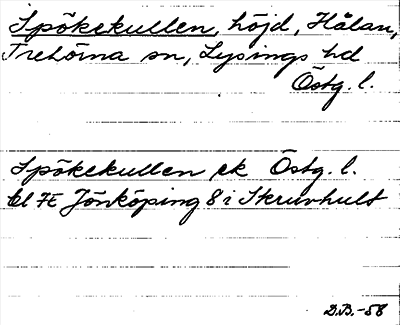 Spökekullen, höjd, Hålan,
Trehörna sn, Lysings hd
Östg. l.
Spökekullen ek Östg. l.
bl 7E Jönköping 8 i Skruvhult
D.B.-58